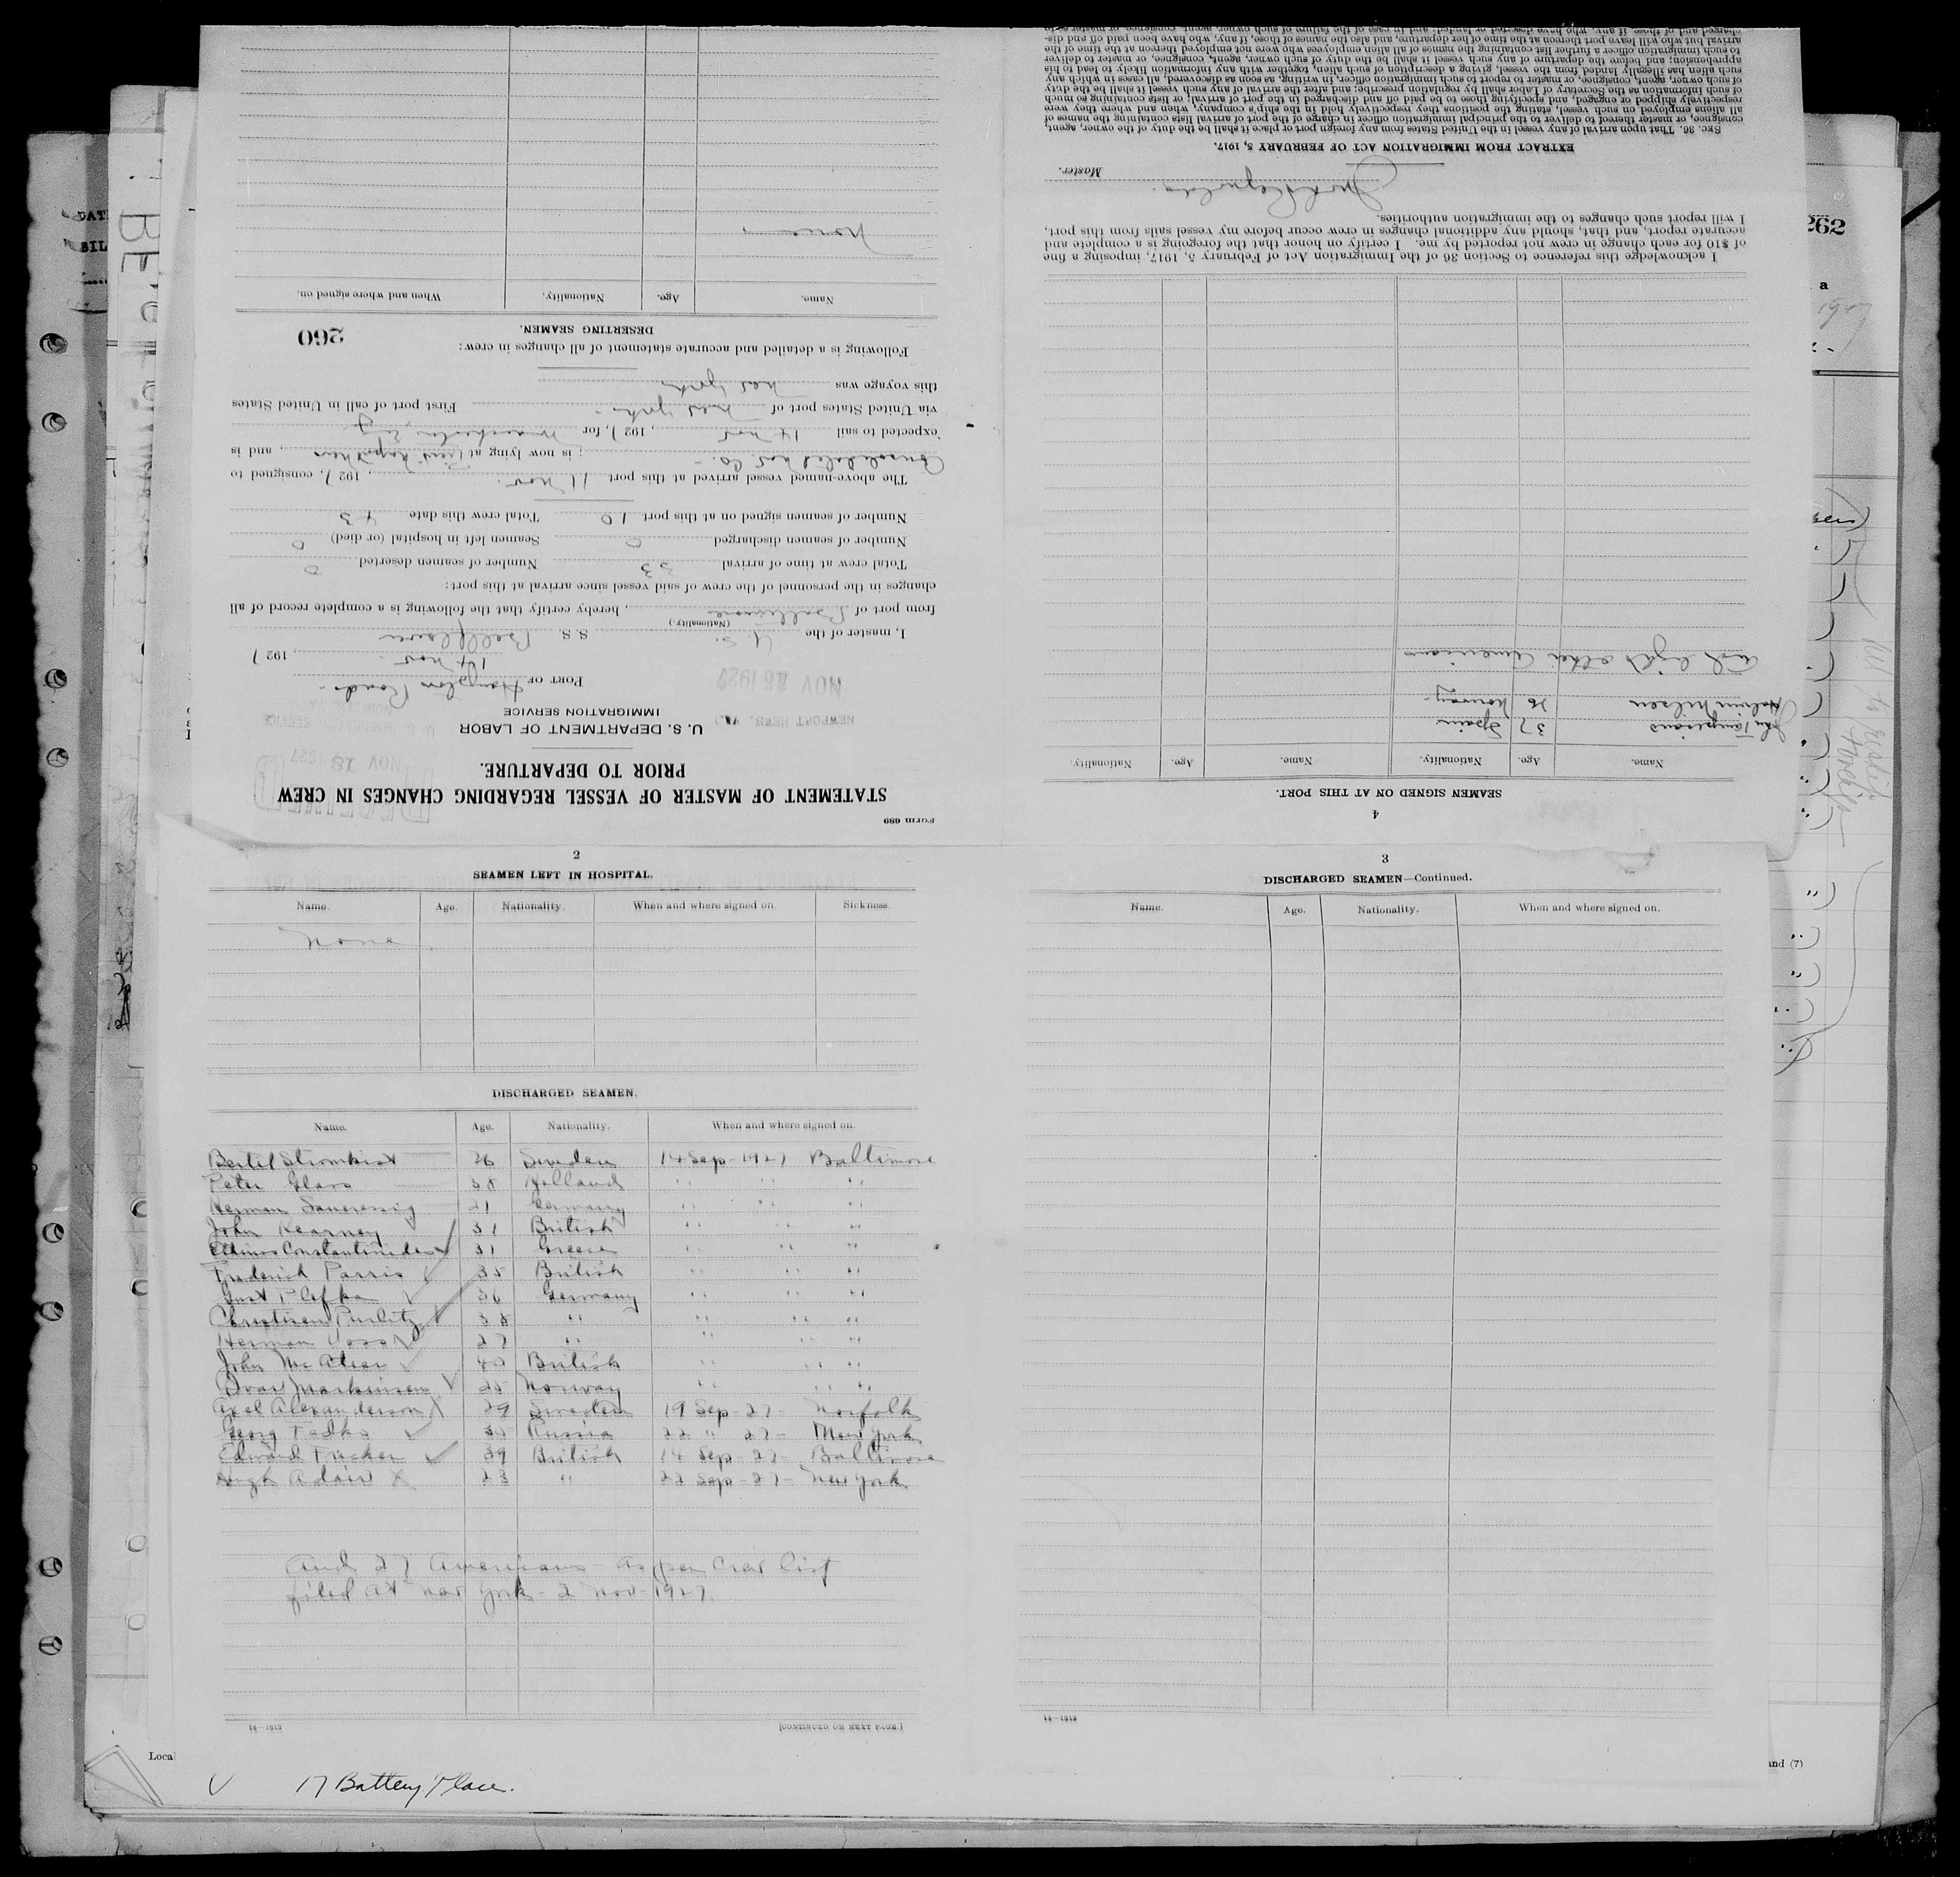 Form 689
STATEMENT OF MASTER OF VESSEL REGARDING CHANGES IN CREW
PRIOR TO DEPARTURE.
U. S. DEPARTMENT OF LABOR
IMMIGRATION SERVICE
NEWPORT NEWS, VA.
NOV 16 1927
NOV 18 1927
PORT OF Hampton Roads
14 Nov. , 1927
I, master of the U. S. S. S. Bellflower
(Nationality.)
from port of Baltimore, hereby certify that the following is a complete record of all
changes in the personnel of the crew of said vessel since arrival at this port:
Total crew at time of arrival 33 Number of seamen deserted 0
Number of seamen discharged 0 Seamen left in hospital (or died) 0
Number of seamen signed on at this port 10 Total crew this date 43
The above-named vessel arrived at this port 11 Nov. , 1927, consigned to
Consolidated Nav. Co. ; is now lying at Newport News, and is
expected to sail 14 Nov , 1927, for Manchester, Eng
via United States port of New York First port of call in United States
this voyage was New York
Following is a detailed and accurate statement of all changes in crew:
260
DESERTING SEAMEN.
Name. Age. Nationality. When and where signed on.
None
4
SEAMEN SIGNED ON AT THIS PORT.
Name. Age. Nationality. Name. Age. Nationality.
37 Spain
Halvim Nilsen 26 Norway
and eight other Americans
I acknowledge this reference to Section 36 of the Immigration Act of February 5, 1917, imposing a fine
of $10 for each change in crew not reported by me. I certify on honor that the foregoing is a complete and
accurate report, and that, should any additional changes in crew occur before my vessel sails from this port,
I will report such changes to the immigration authorities.
Reynolds
Master.
EXTRACT FROM IMMIGRATION ACT OF FEBRUARY 5, 1917.
SEC. 36. That upon arrival of any vessel in the United States from any foreign port or place it shall be the duty of the owner, agent,
consignee, or master thereof to deliver to the principal immigration officer in charge of the port of arrival lists containing the names of
all aliens employed on such vessel, stating the positions they respectively hold in the ship's company, when and where they were
respectively shipped or engaged, and specifying those to be paid off and discharged in the port of arrival; or lists containing so much
of such information as the Secretary of Labor shall by regulation prescribe; and after the arrival of any such vessel it shall be the duty
of such owner, agent, consignee, or master to report to such immigration officer, in writing, as soon as discovered, all cases in which any
such alien has illegally landed from the vessel, giving a description of such alien, together with any information likely to lead to his
apprehension; and before the departure of any such vessel it shall be the duty of such owner, agent, consignee, or master to deliver
to such immigration officer a further list containing the names of all alien employees who were not employed thereon at the time of the
arrival but who will leave port thereon at the time of her departure, and also the names of those, if any, who have been paid off and dis-
charged and of those, if any, who have deserted or landed; and in case of the failure of such owner, agent, consignee, or master so
2
SEAMEN LEFT IN HOSPITAL.
Name. Age. Nationality. When and where signed on. Sickness.
None
DISCHARGED SEAMEN.
Name. Age. Nationality. When and where signed on.
Bertil Stromkist 26 Sweden 14 Sep-1927 Baltimore
Peter Glass 38 Holland " " "
Herman Saueressig 21 Germany " " "
John Kearney 31 British " " "
Constantinides 31 Greece " " "
Frederick Parris 35 British " " "
Gust Plefka 26 Germany " " "
Christian Purlitz 38 " " " "
Herman Voss 27 " " " "
John McAteer 40 British " " "
Ivar Markussen 25 Norway " " "
Axel Alexanderson 29 Sweden 19 Sep-27- Norfolk
Georg Fedko 30 Russia 22 " 27- New York
Edward Tucker 39 British 14 Sep-27- Baltimore
Hugh Adair 23 " 22 Sep-27- New York
And 27 Americans - as per crew list
filed at New York - 2 Nov-1927.
14—1913
[CONTINUED ON NEXT PAGE.]
3
DISCHARGED SEAMEN—Continued.
Name. Age. Nationality. When and where signed on.
14—1913
262
Local
and (7)
17 Battery Place.